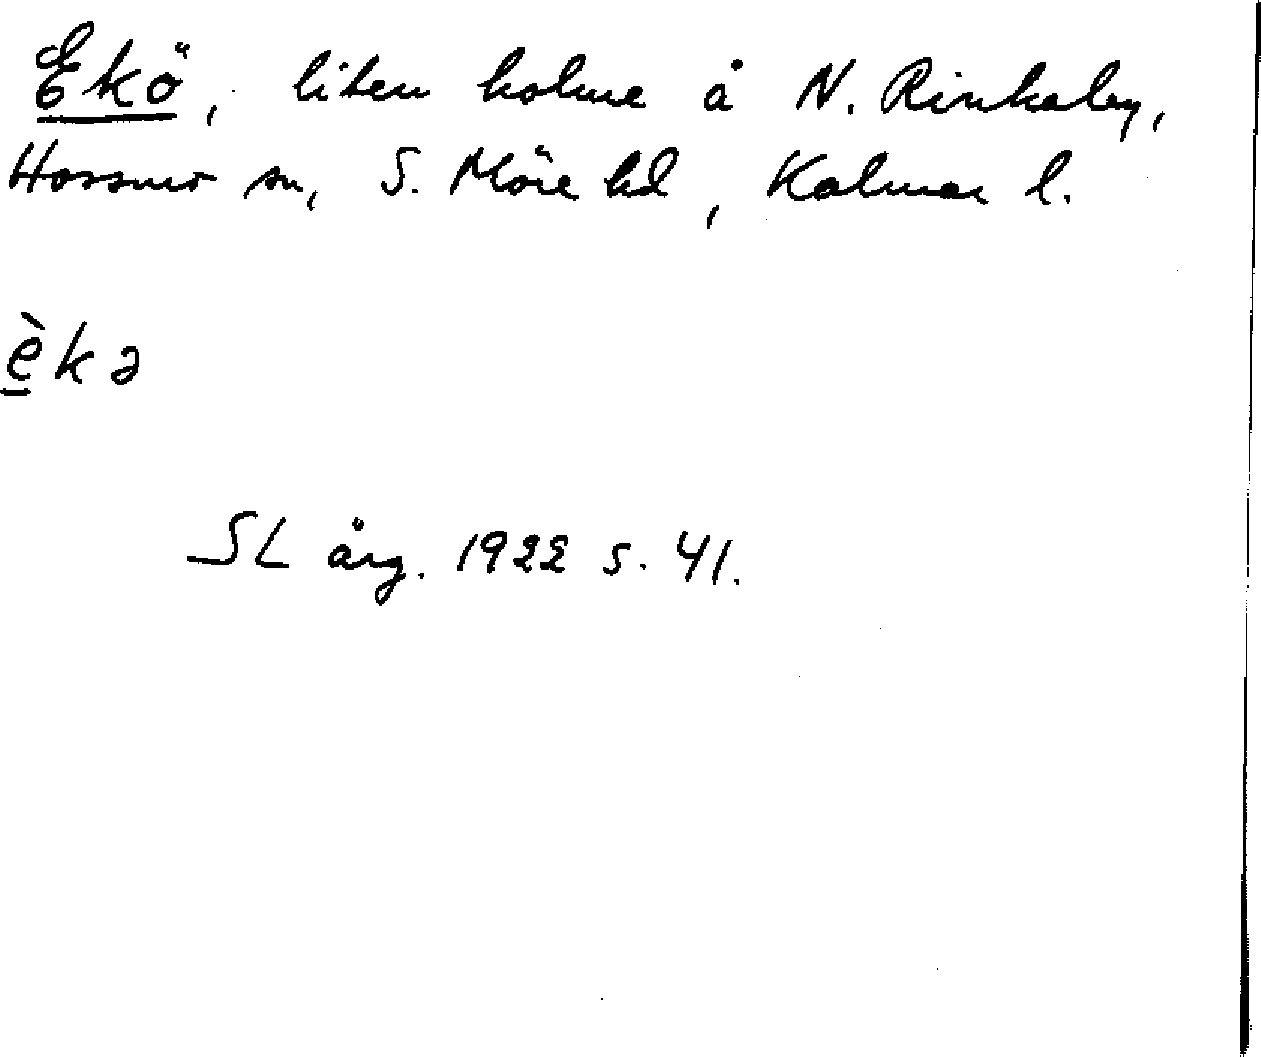 Ekö, liten holme å N. Rinkaby,
Hossmo sn, S. Möre hd, Kalmar l.
è̱kə
SL årg. 1922 s. 41.